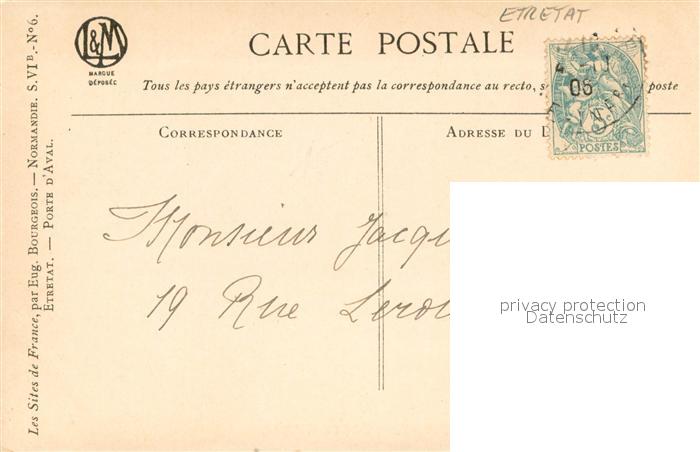 ETRETAT
L&M
MARQUE
DÉPOSÉE
CARTE POSTALE
Tous les pays étrangers n'acceptent pas la correspondance au recto, se poste
CORRESPONDANCE
ADRESSE DU
05
POSTES
Monsieur Jacqu
19 Rue Lerou
privacy protection
Datenschutz
Les Sites de France, par Eug. BOURGEOIS. — NORMANDIE. S. VIB.-No 6.
ETRETAT. — PORTE D'AVAL.